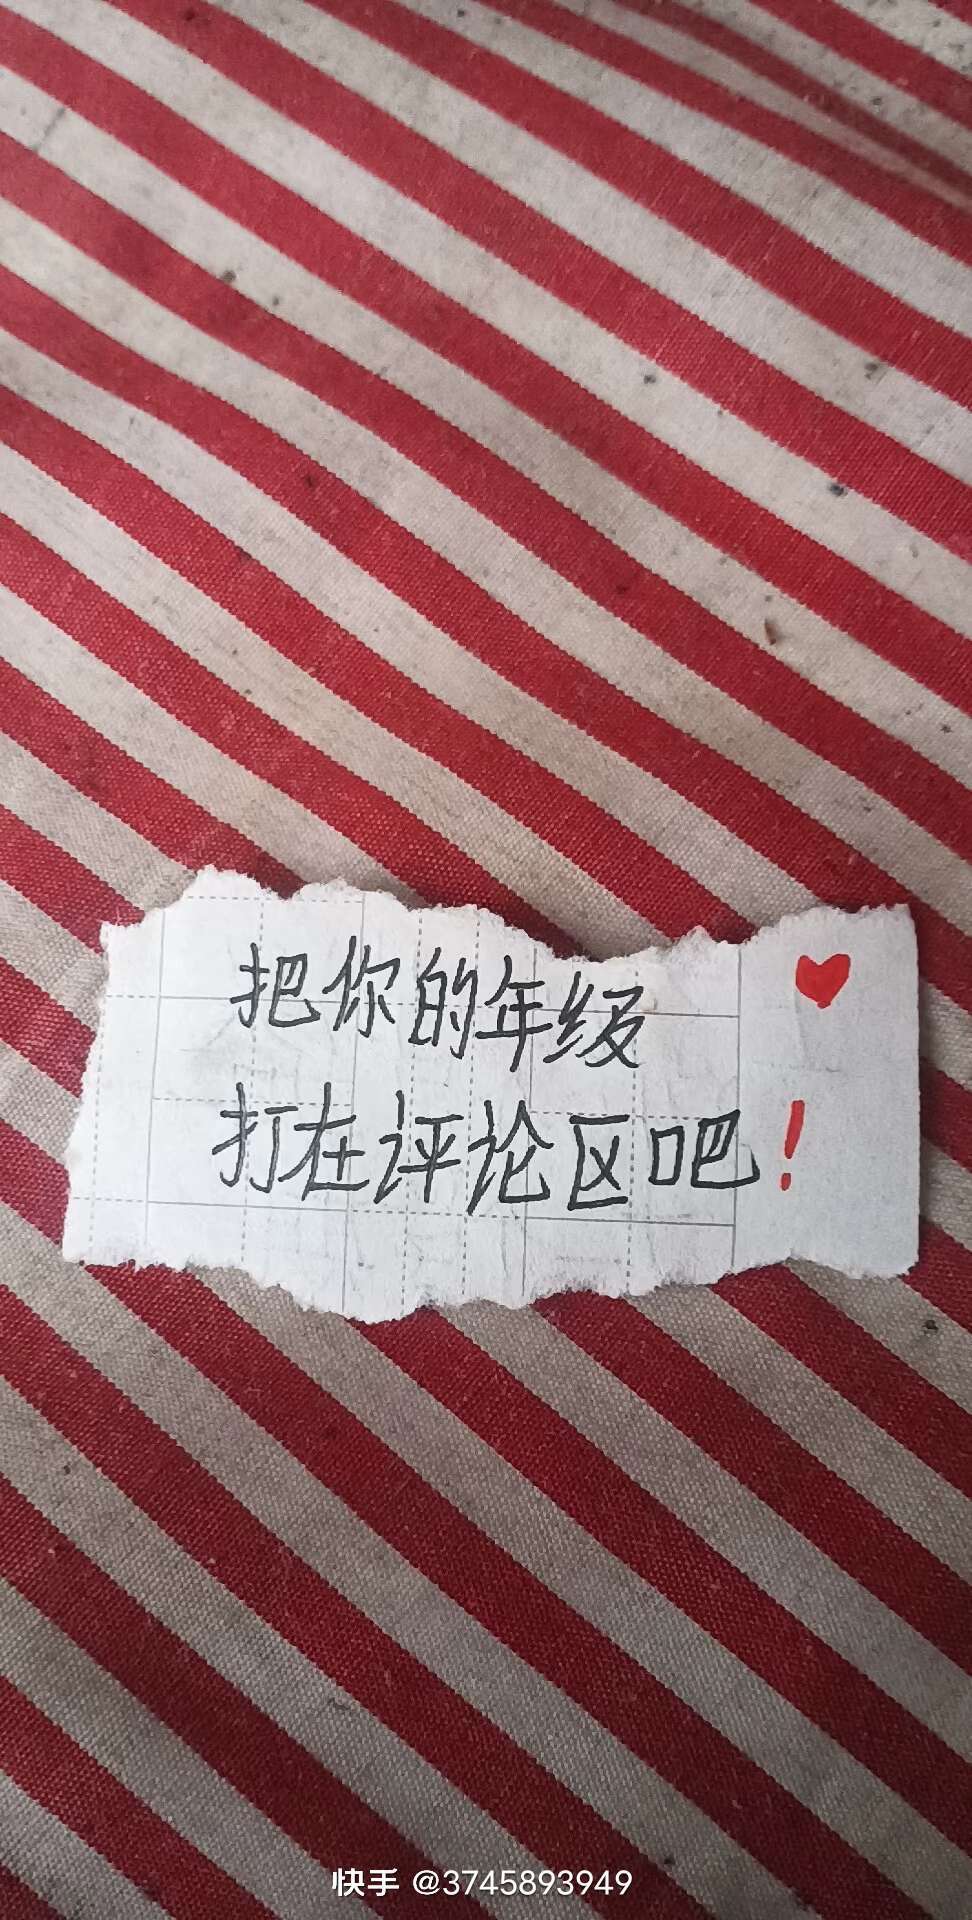 把你的年级
打在评论区吧！
快手 @3745893949